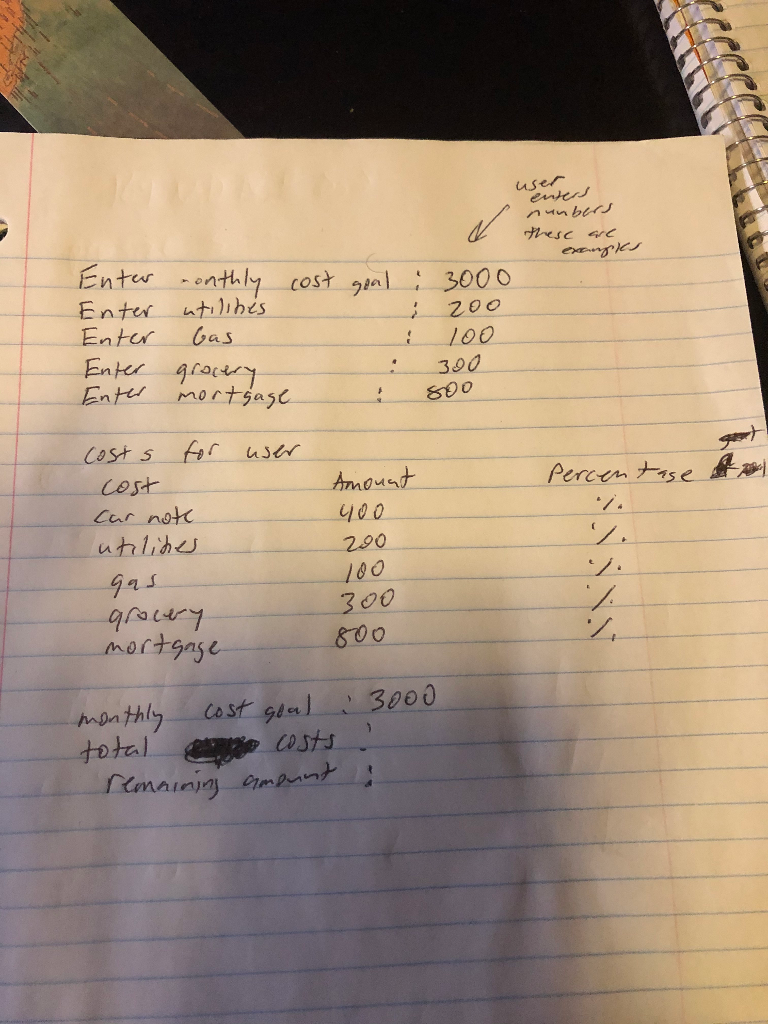 user
enters
numbers
these are
examples
Enter monthly cost goal : 3000
Enter utilities : 200
Enter Gas : 100
Enter grocery : 300
Enter mortgage : 800
costs for user
cost Amount Percentage
car note 400 %
utilities 200 %
gas 100 %
grocery 300 %
mortgage 800 %
monthly cost goal : 3000
total costs :
remaining amount :